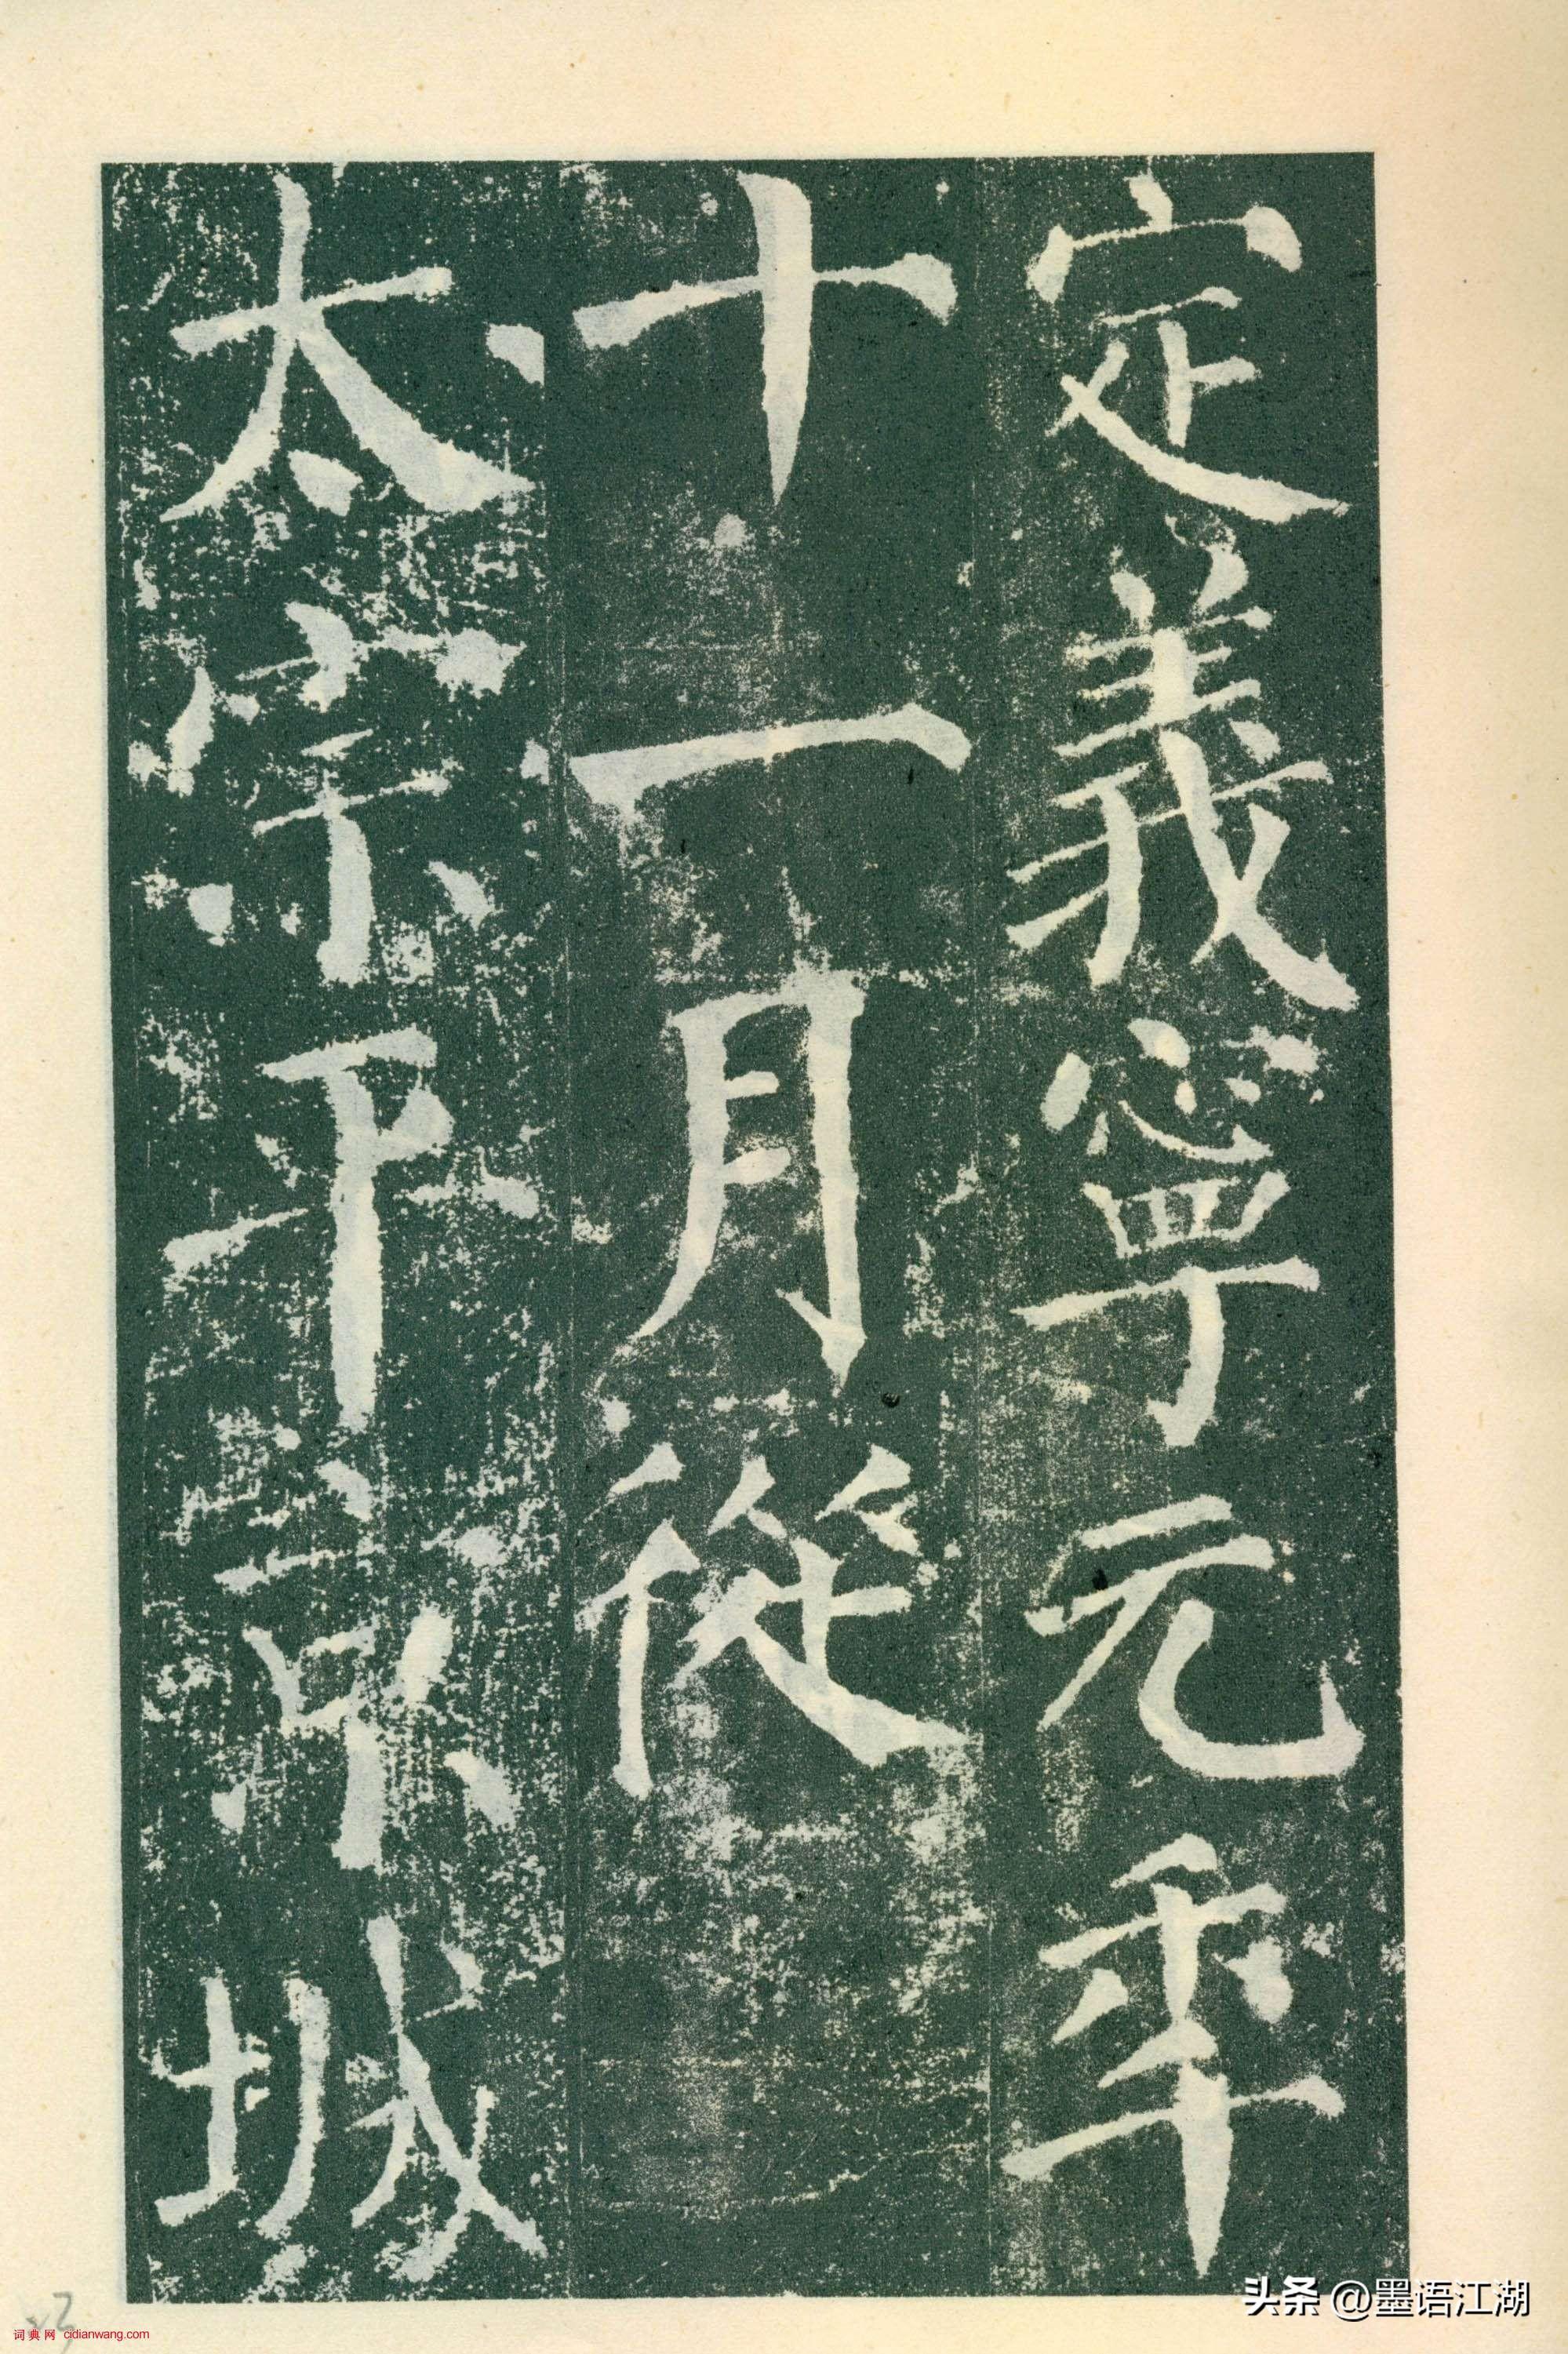 定義寧元年
十一月從
太宗下京城
头条 @墨语江湖
词典网 cidianwang.com